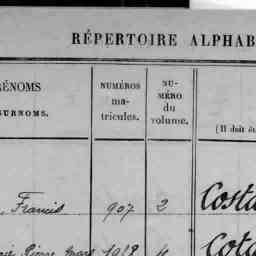 RÉPERTOIRE ALPHAB
RÉNOMS
SURNOMS.
NUMÉROS
ma-
tricules.
NU-
MÉRO
du
volume.
(Il doit êt
Francis 907 2 Costa
Pierre 1018 Cota